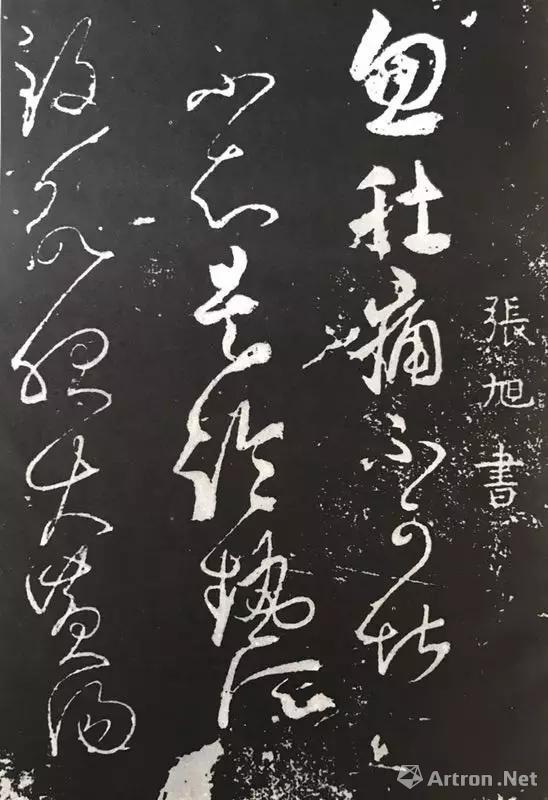 張旭書
忽肚痛不可堪
不知是冷熱所
致欲服大黃湯
Artron.Net